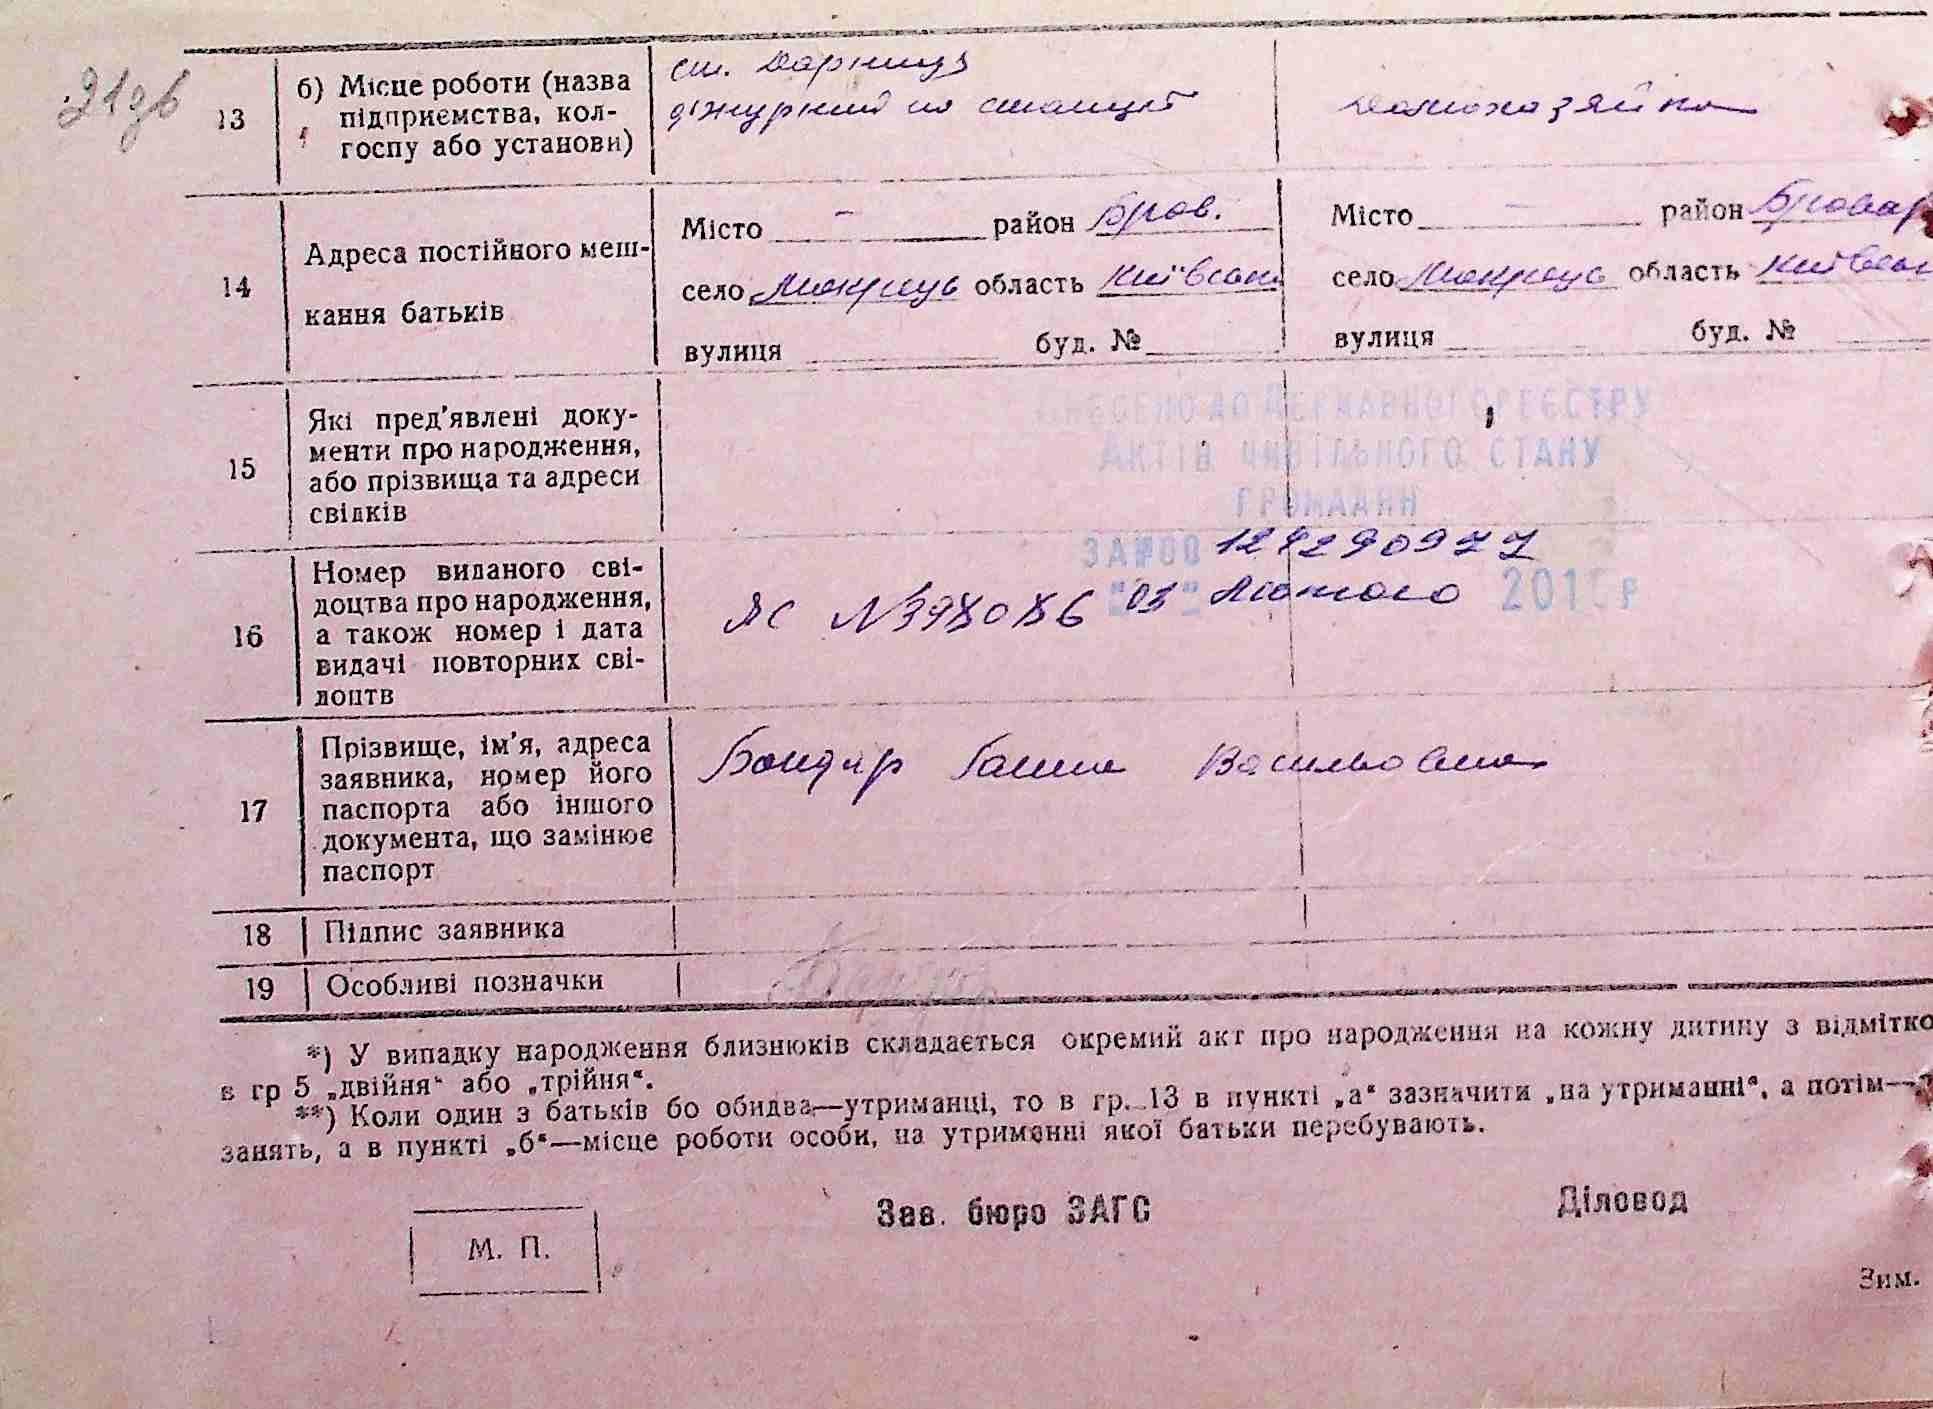 21 дв
13 б) Місце роботи (назва підприємства, колгоспу або установи)
ст. Дарниця
діжурний по станції
Домохазяйка
14 Адреса постійного меш-
кання батьків
Місто — район Бров.
село Мокрець область Київськ
вулиця буд. №
Місто — район Бровар
село Мокрець область Київськ
вулиця буд. №
15 Які пред'явлені доку-
менти про народження,
або прізвища та адреси
свідків
ВНЕСЕНО ДО ДЕРЖАВНОГО РЕЄСТРУ
АКТІВ ЦИВІЛЬНОГО СТАНУ
ГРОМАДЯН
"03" Лютого 201 р
16 Номер виданого сві-
доцтва про народження,
а також номер і дата
видачі повторних сві-
доцтв
ЯС №
17 Прізвище, ім'я, адреса
заявника, номер його
паспорта або іншого
документа, що замінює
паспорт
Бондар Ганна Васильовна
18 Підпис заявника
19 Особливі позначки
Бондар
*) У випадку народження близнюків складається окремий акт про народження на кожну дитину з відмітко
в гр 5 „двійня“ або „трійня“.
**) Коли один з батьків бо обидва—утриманці, то в гр. 13 в пункті „а“ зазначити „на утриманні“, а потім—
занять, а в пункті „б“—місце роботи особи, на утриманні якої батьки перебувають.
М. П.
Зав. бюро ЗАГС
Діловод
Зим.